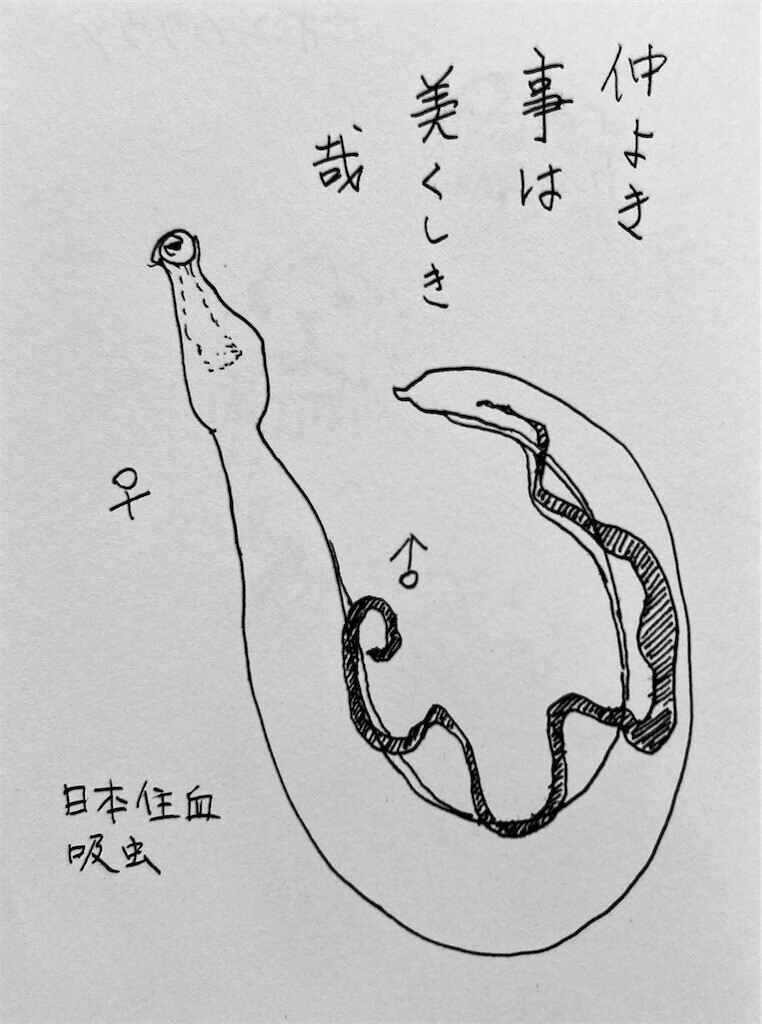 仲よき
事は
美くしき
哉
♀
♂
日本住血
吸虫